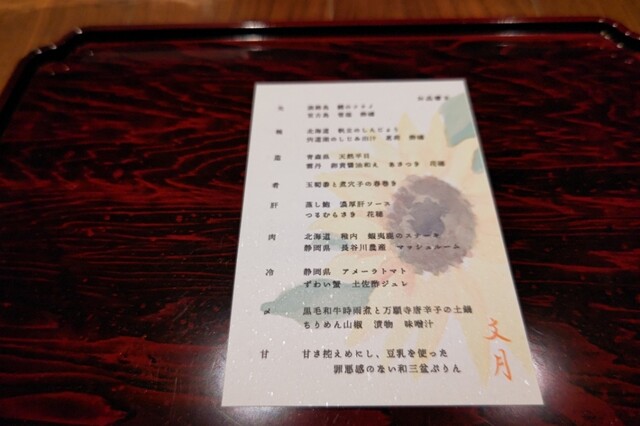 お品書き
先
椀 北海道 帆立のしんじょう
宍道湖のしじみ出汁
造 青森県 天然平目
雲丹 卵黄醤油和え あさつき 花穂
肴 玉蜀黍と煮穴子の春巻き
肝 蒸し鮑 濃厚肝ソース
つるむらさき 花穂
肉 北海道 稚内 蝦夷鹿のステーキ
静岡県 長谷川農産 マッシュルーム
冷 静岡県 アメーラトマト
ずわい蟹 土佐酢ジュレ
〆 黒毛和牛時雨煮と万願寺唐辛子の土鍋
ちりめん山椒 漬物 味噌汁
甘 甘さ控えめにし、豆乳を使った
罪悪感のない和三盆ぷりん
文月